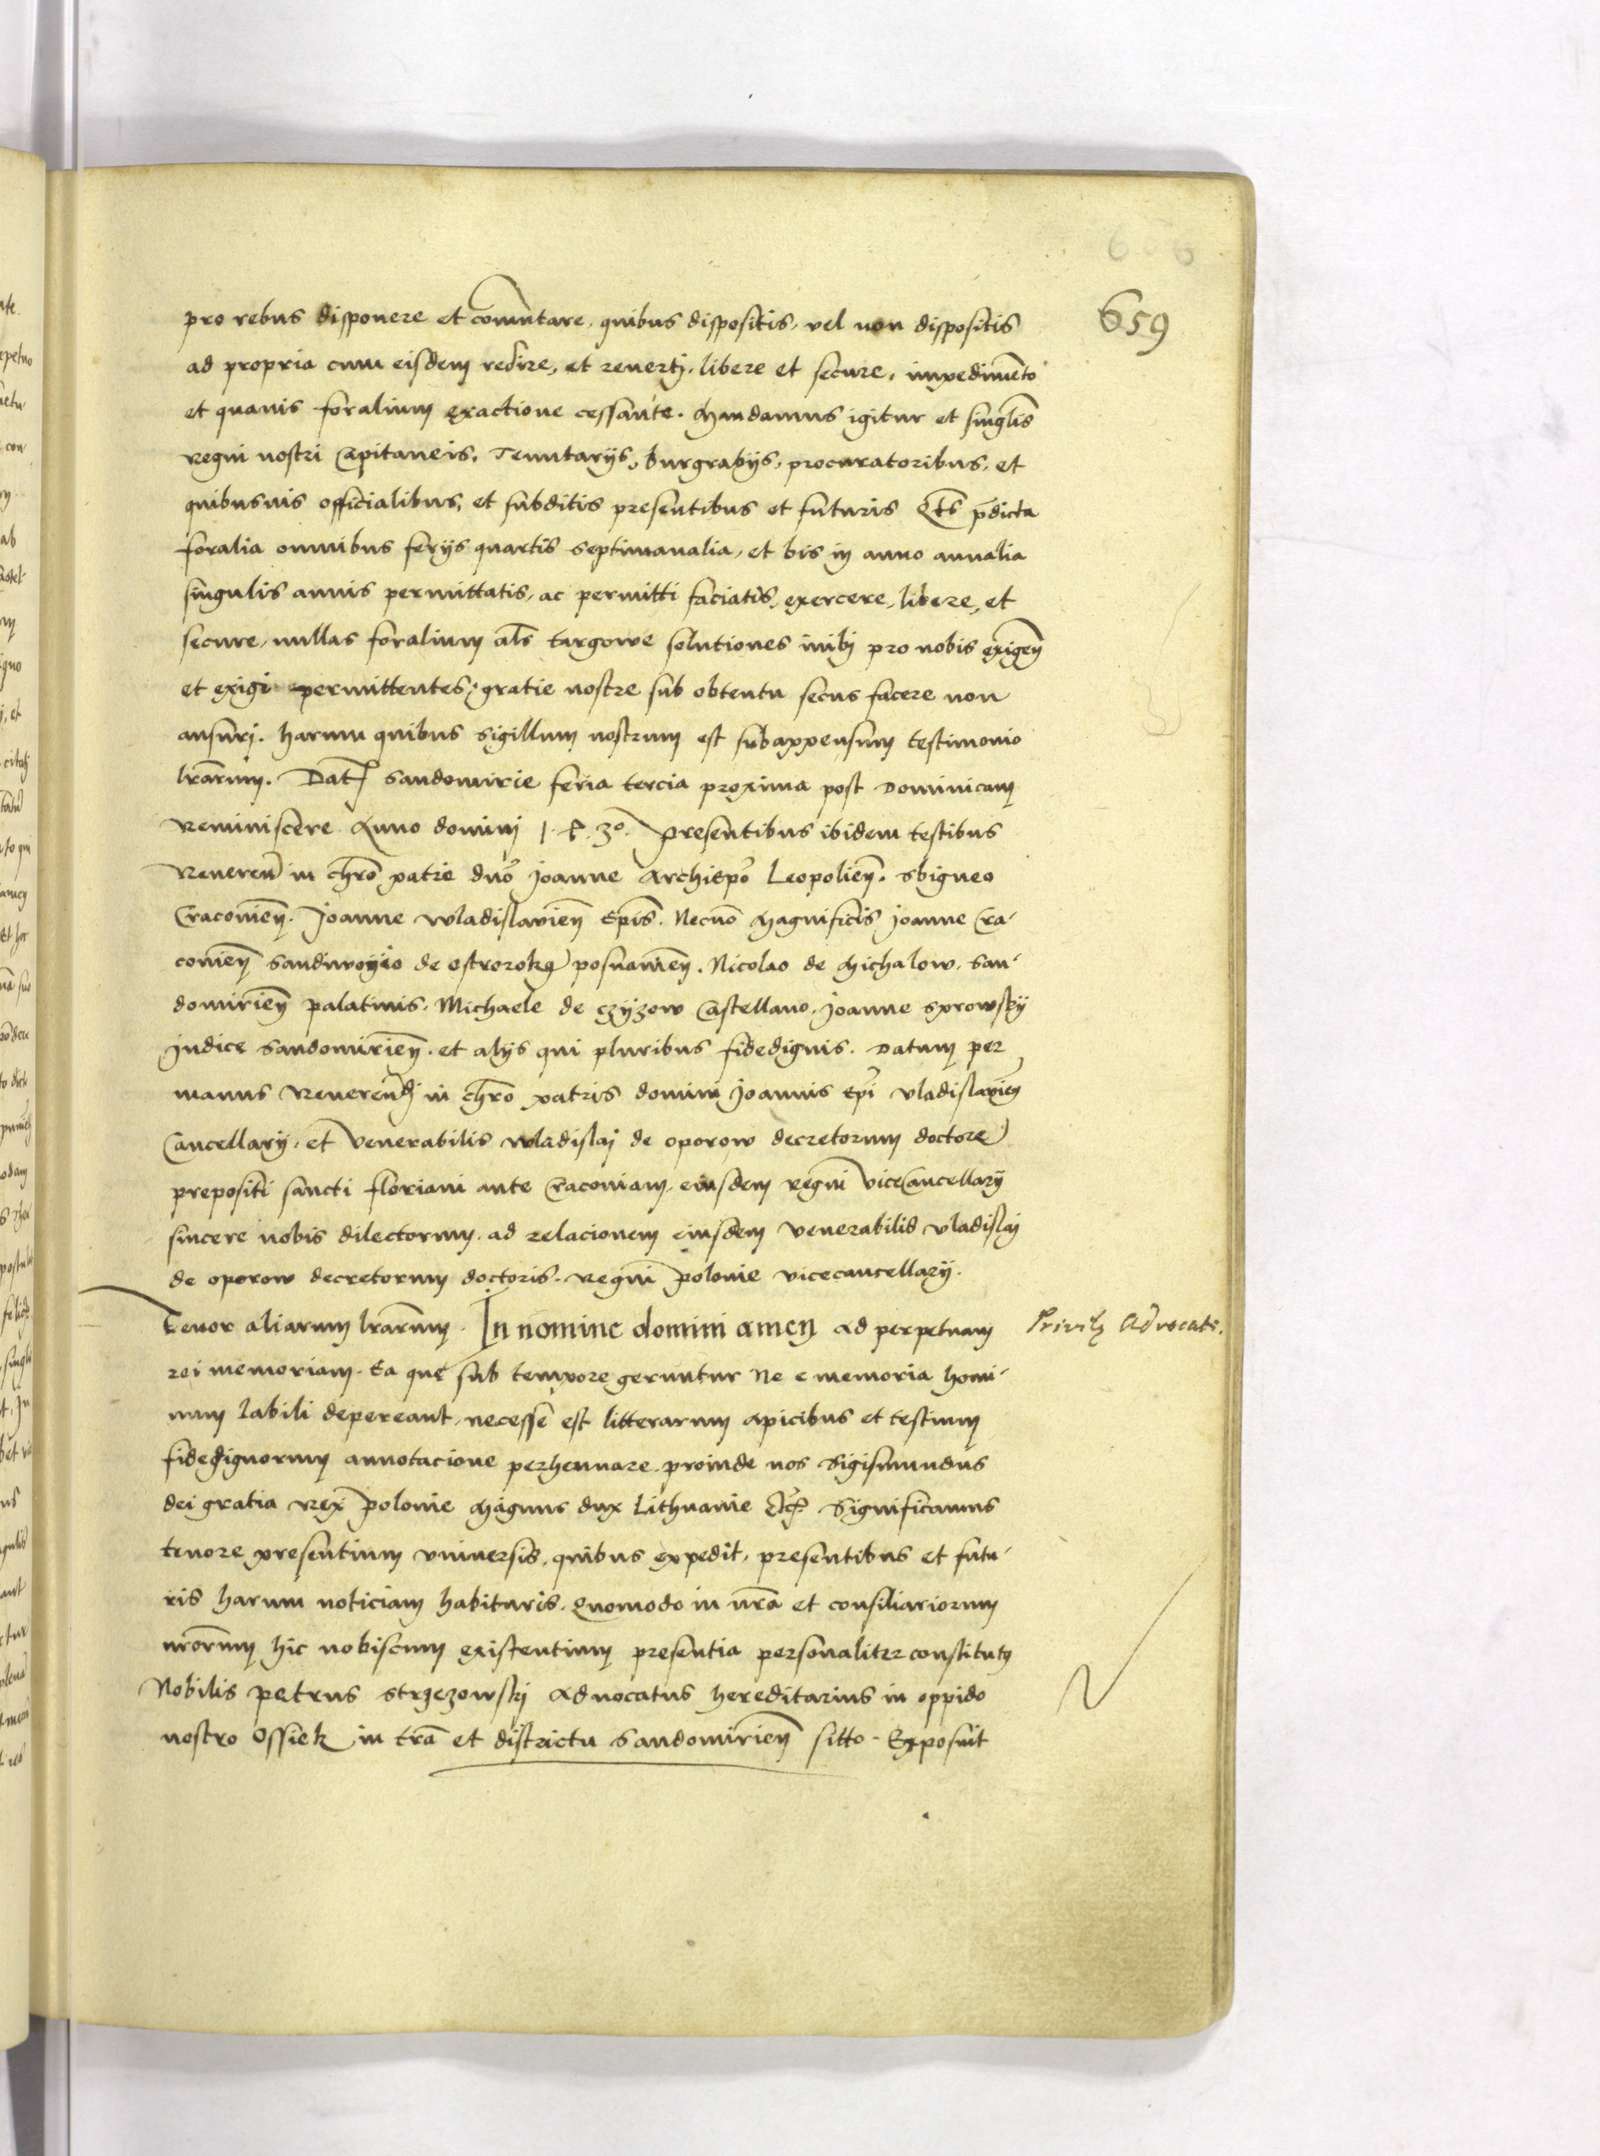 659
pro rebus disponere et comutare, quibus dispositis, vel non dispositis
ad propria cum eisdem redire, et revertj, libere et secure, impedimeto
et quavis foralium exactione cessante. Mandamus igitur et singlis
regni nostri Capitaneis, Tenutarijs, burgrabijs, procuratoribus, et
quibusvis officialibus, et subditis presentibus et futuris Qts pdicta
foralia omnibus ferijs quartis septimanalia, et bis in anno annalia
singulis annis permittatis, ac permitti faciatis, exercere, libere, et
secure, nullas foralium als targowe solutiones inibj pro nobis exigen
et exigi permittentes, gratie nostre sub obtentu secus facere non
ausurj. Harum quibus sigillum nostrum est subappensum testimonio
lrarum. Dat Sandomirie feria tercia proxima post Dominicam
Reminiscere Anno domini presentibus ibidem testibus
Reveren in chro patre dno Joanne Archiepo Leopolien. Sbigneo
Cracovien. Joanne Wladislavien Epis. Necno Magnificis Joanne Cra-
covien Sandivogio de ostrorokg posnanien. Nicolao de Michalow. San-
domirien palatinis. Michaele de Czyzow Castellano. Joanne Sprowsky
Judice Sandomirien. et alijs qui pluribus fidedignis. Datum per
manus Reverendj in chro patris domini Joannis Epi Vladislavien
Cancellarij. et Venerabilis Wladislaj de oporow decretorum doctore
prepositi sancti floriani ante Cracoviam, eiusdem regni ViceCancellarij
sincere nobis dilectorum. ad relacionem eiusdem Venerabilis Vladislaj
de oporow decretorum doctoris. regni polonie vicecancellarij.
Tenor aliarum lrarum. In nomine domini amen ad perpetuam
Privilg Advocate.
rei memoriam. Ea que sub tempore geruntur Ne e memoria homi-
num labili depereant, necesse est litterarum apicibus et testium
fidedignorum annotacione perhennare. proinde nos Sigismundus
dei gratia Rex polonie Magnus dux Lithuanie Etc Significamus
tenore presentium universis, quibus expedit, presentibus et futu-
ris harum noticiam habituris. Quomodo in nra et consiliariorum
nrorum hic nobiscum existentium presentia personaliter constitutg
Nobilis petrus strzezowskj Advocatus hereditarius in oppido
nostro Ossiek in tra et districtu Sandomirien sitto. Exposuit